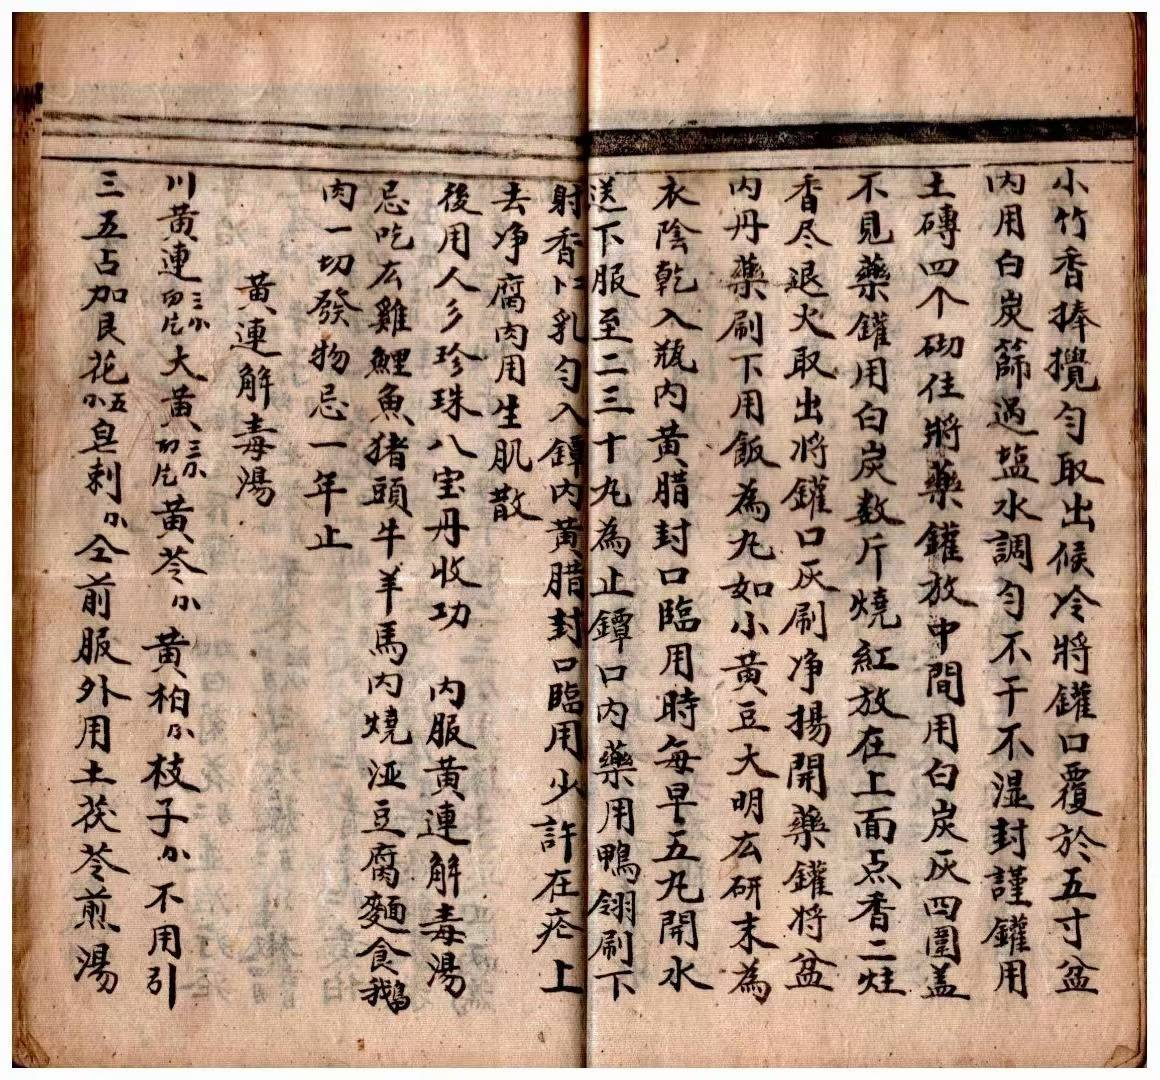 小竹香捧攪匀取出候冷將鑵口覆於五寸盆
內用白炭篩過盐水調匀不干不湿封謹鑵用
土磚四个砌住將藥鑵放中間用白炭灰四圍盖
不見藥鑵用白炭数斤燒紅放在上面点香二炷
香尽退火取出將鑵口灰刷净揚開藥鑵将盆
内丹藥刷下用飯為丸如小黄豆大明厷研末為
衣陰乾入瓶内黄腊封口臨用時每早五丸開水
送下服至二三十丸為止鐔口内藥用鴨翎刷下
射香乳匀入鐔内黄腊封口臨用少許在疮上
去净腐肉用生肌散
後用人彡珍珠八宝丹收功 内服黄連解毒湯
忌吃厷雞鯉魚猪頭牛羊馬肉燒酒豆腐麵食鵝
肉一切發物忌一年止
黄連解毒湯
川黄連三小切片大黄三小切片黄芩小黄柏小枝子小不用引
三五占加艮花五小皂刺小仝前服外用土茯苓煎湯